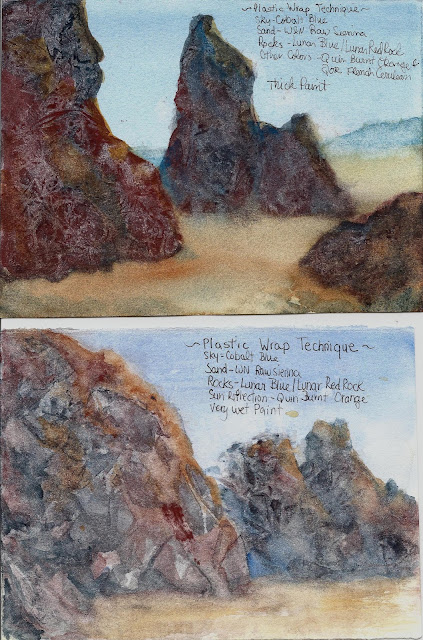 ~Plastic Wrap Technique~
Sky-Cobalt Blue
Sand-W&N Raw Sienna
Rocks-Lunar Blue/Lunar Red Rock
Other Colors-Quin Burnt Orange &
QoR French Cerulean
Thick Paint
~Plastic Wrap Technique~
Sky-Cobalt Blue
Sand-WN Raw Sienna
Rocks-Lunar Blue/Lunar Red Rock
Sun Reflection-Quin Burnt Orange
Very Wet Paint